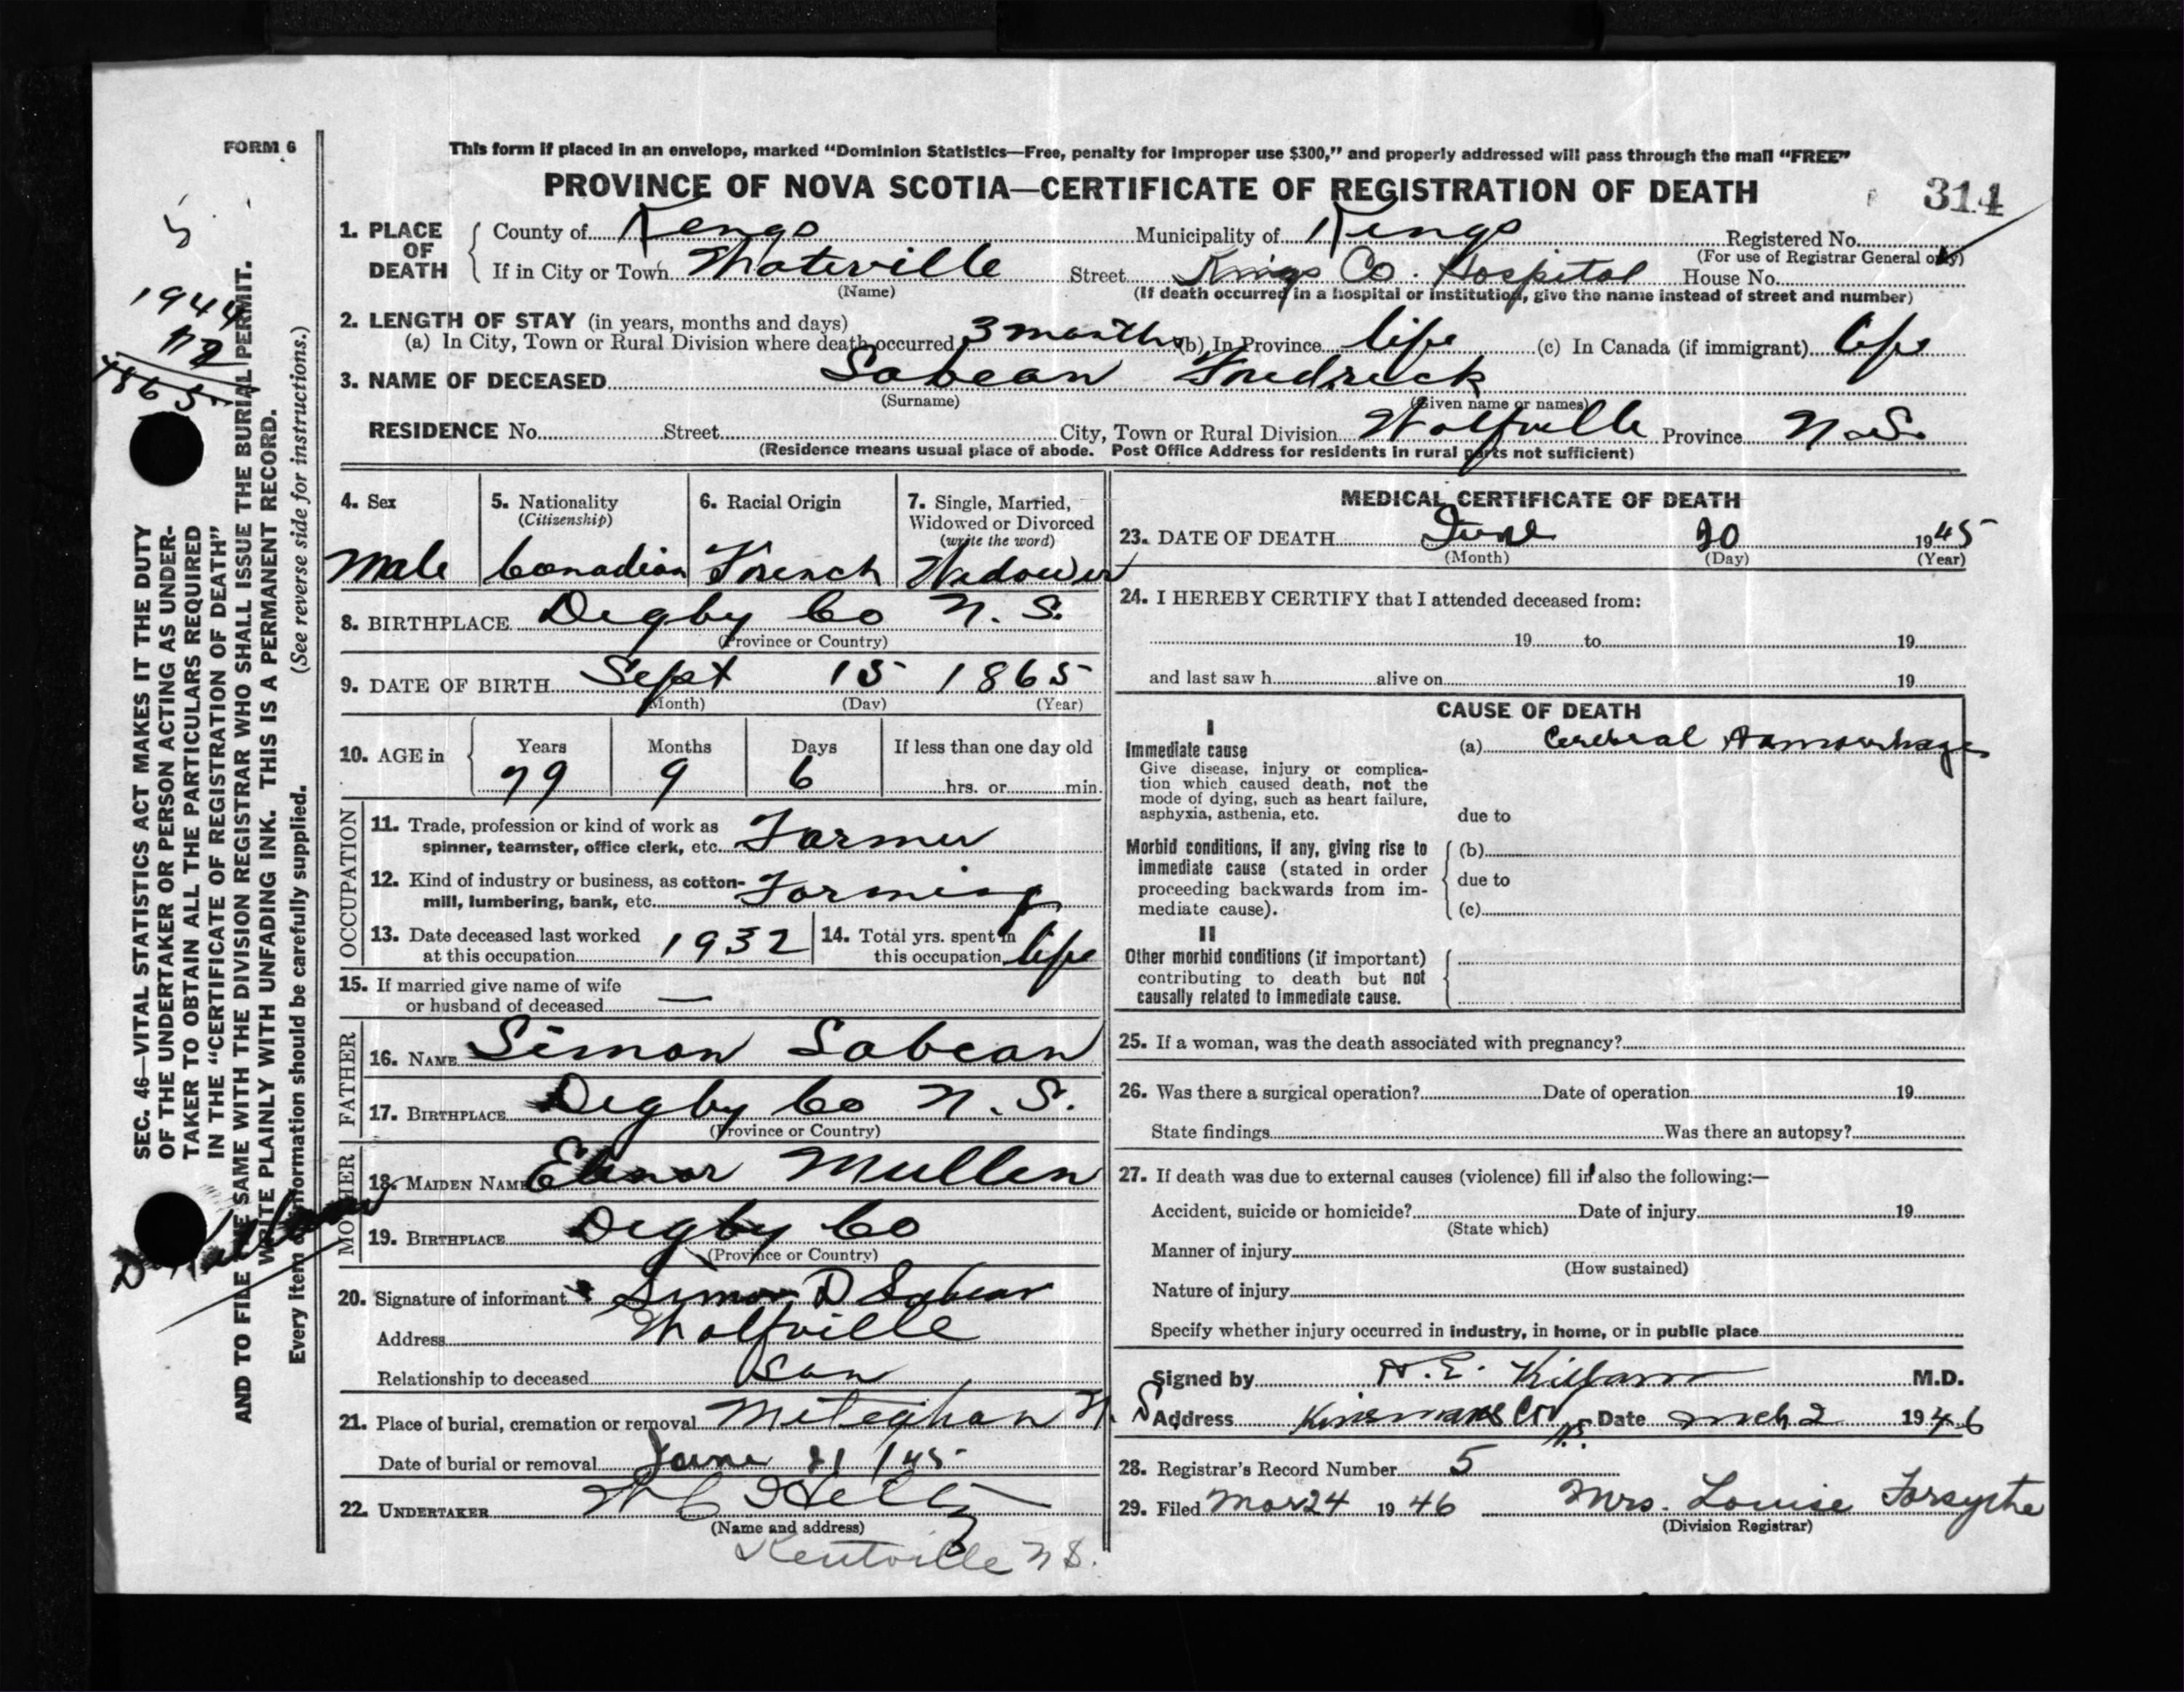 FORM 6
This form if placed in an envelope, marked "Dominion Statistics—Free, penalty for improper use $300," and properly addressed will pass through the mail "FREE"
PROVINCE OF NOVA SCOTIA—CERTIFICATE OF REGISTRATION OF DEATH
314
1. PLACE OF DEATH
County of Kings Municipality of Kings Registered No.
(For use of Registrar General only)
If in City or Town Waterville Street Kings Co. Hospital House No.
(Name) (If death occurred in a hospital or institution, give the name instead of street and number)
2. LENGTH OF STAY (in years, months and days)
(a) In City, Town or Rural Division where death occurred 3 months (b) In Province life (c) In Canada (if immigrant) life
3. NAME OF DECEASED Sabean Fredrick
(Surname) (Given name or names)
RESIDENCE No. Street City, Town or Rural Division Wolfville Province N.S.
(Residence means usual place of abode. Post Office Address for residents in rural parts not sufficient)
4. Sex
Male
5. Nationality
(Citizenship)
Canadian
6. Racial Origin
French
7. Single, Married,
Widowed or Divorced
(write the word)
Widower
8. BIRTHPLACE Digby Co N.S.
(Province or Country)
9. DATE OF BIRTH Sept 15 1865
(Month) (Day) (Year)
10. AGE in
Years Months Days If less than one day old
79 9 6 hrs. or min.
OCCUPATION
11. Trade, profession or kind of work as
spinner, teamster, office clerk, etc. Farmer
12. Kind of industry or business, as cotton-
mill, lumbering, bank, etc. Farming
13. Date deceased last worked
at this occupation 1932
14. Total yrs. spent in
this occupation life
15. If married give name of wife
or husband of deceased —
FATHER
16. NAME Simon Sabean
17. BIRTHPLACE Digby Co N.S.
(Province or Country)
MOTHER
18. MAIDEN NAME Elenor Mullen
19. BIRTHPLACE Digby Co
(Province or Country)
20. Signature of informant Simon D Sabean
Address Wolfville
Relationship to deceased Son
21. Place of burial, cremation or removal Meteghan N.S
Date of burial or removal June 21/45
22. UNDERTAKER
(Name and address)
Kentville N S.
MEDICAL CERTIFICATE OF DEATH
23. DATE OF DEATH June 20 1945
(Month) (Day) (Year)
24. I HEREBY CERTIFY that I attended deceased from:
19 to 19
and last saw h alive on 19
CAUSE OF DEATH
I
Immediate cause
Give disease, injury or complica-
tion which caused death, not the
mode of dying, such as heart failure,
asphyxia, asthenia, etc.
(a) Cerebral
due to
Morbid conditions, if any, giving rise to
immediate cause (stated in order
proceeding backwards from im-
mediate cause).
(b)
due to
(c)
II
Other morbid conditions (if important)
contributing to death but not
causally related to immediate cause.
25. If a woman, was the death associated with pregnancy?
26. Was there a surgical operation? Date of operation 19
State findings Was there an autopsy?
27. If death was due to external causes (violence) fill in also the following:—
Accident, suicide or homicide? Date of injury 19
(State which)
Manner of injury
(How sustained)
Nature of injury
Specify whether injury occurred in industry, in home, or in public place
Signed by H.E. Killam M.D.
Address Date Mch 2 1946
28. Registrar's Record Number 5
29. Filed Mar 24 1946 Mrs. Louise Forsythe
(Division Registrar)
5
1944
79
1865
SEC. 46—VITAL STATISTICS ACT MAKES IT THE DUTY
OF THE UNDERTAKER OR PERSON ACTING AS UNDER-
TAKER TO OBTAIN ALL THE PARTICULARS REQUIRED
IN THE "CERTIFICATE OF REGISTRATION OF DEATH"
AND TO FILE THE SAME WITH THE DIVISION REGISTRAR WHO SHALL ISSUE THE BURIAL PERMIT.
WRITE PLAINLY WITH UNFADING INK. THIS IS A PERMANENT RECORD.
Every item of information should be carefully supplied. (See reverse side for instructions.)